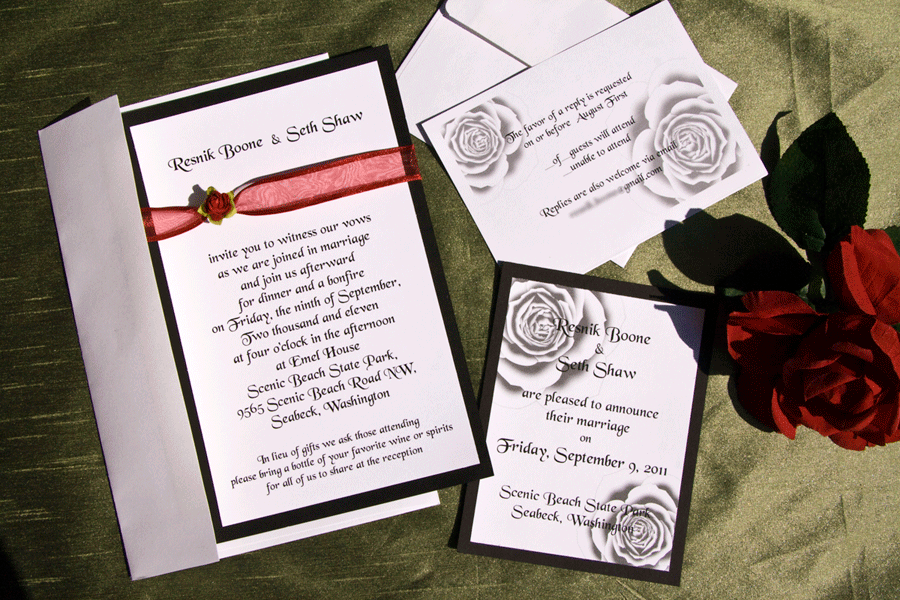 Resnik Boone & Seth Shaw
invite you to witness our vows
as we are joined in marriage
and join us afterward
for dinner and a bonfire
on Friday, the ninth of September,
Two thousand and eleven
at four o'clock in the afternoon
at Emel House
Scenic Beach State Park,
9565 Scenic Beach Road NW,
Seabeck, Washington
In lieu of gifts we ask those attending
please bring a bottle of your favorite wine or spirits
for all of us to share at the reception
The favor of a reply is requested
on or before August First
__of__guests will attend
__unable to attend
Replies are also welcome via email
@gmail.com
Resnik Boone
&
Seth Shaw
are pleased to announce
their marriage
on
Friday, September 9, 2011
Scenic Beach State Park
Seabeck, Washington